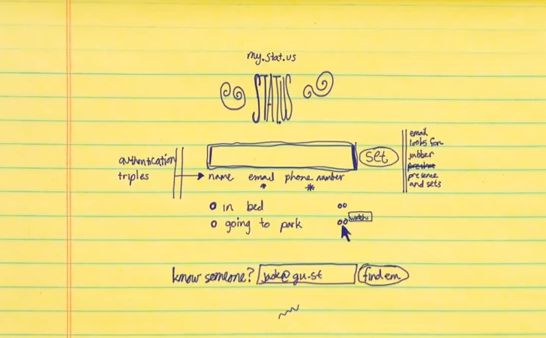 my.stat.us
STATUS
set
authentication
triples
name email phone number
email
looks for
jabber
presence
and sets
in bed
going to park
watch
know someone? jack@gu.st find em